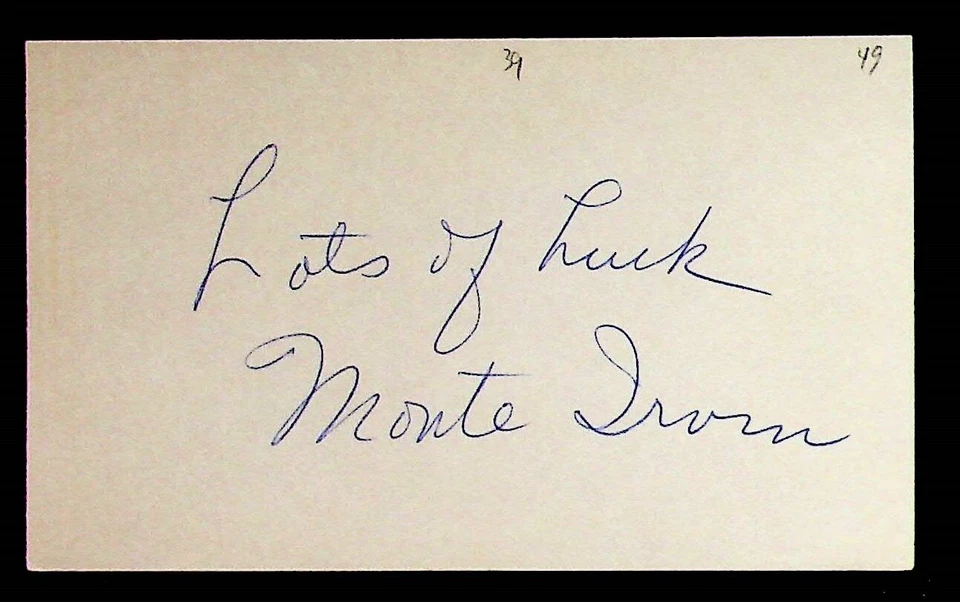 39 49
Lots of Luck
Monte Irvin